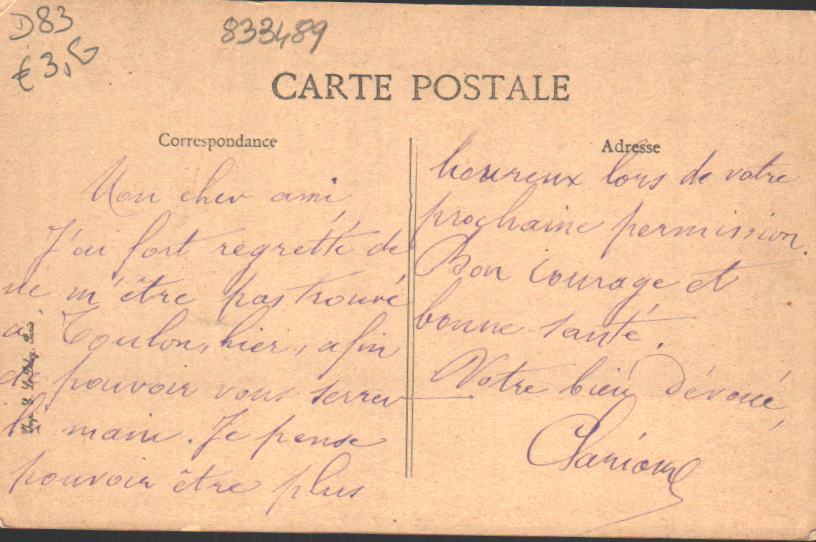 D83
€ 3,5
833489
CARTE POSTALE
Correspondance
Mon cher ami,
J'ai fort regretté de
ne m'être pas trouvé
à Toulon, hier, afin
de pouvoir vous serrer
la main. Je pense
pouvoir être plus
Adresse
heureux lors de votre
prochaine permission.
Bon courage et
bonne santé.
Votre bien dévoué,